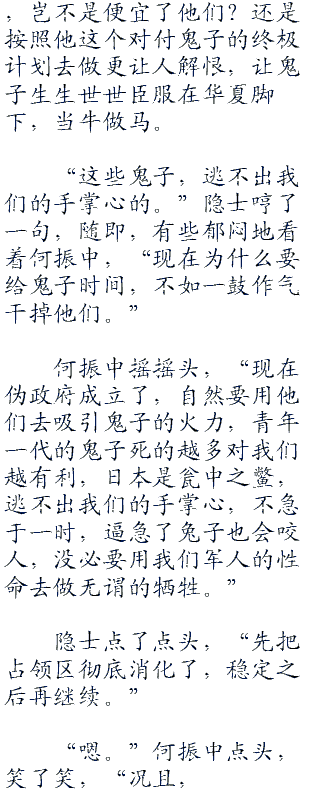 ，岂不是便宜了他们？还是
按照他这个对付鬼子的终极
计划去做更让人解恨，让鬼
子生生世世臣服在华夏脚
下，当牛做马。
“这些鬼子，逃不出我
们的手掌心的。”隐士哼了
一句，随即，有些郁闷地看
着何振中，“现在为什么要
给鬼子时间，不如一鼓作气
干掉他们。”
何振中摇摇头，“现在
伪政府成立了，自然要用他
们去吸引鬼子的火力，青年
一代的鬼子死的越多对我们
越有利，日本是瓮中之鳖，
逃不出我们的手掌心，不急
于一时，逼急了兔子也会咬
人，没必要用我们军人的性
命去做无谓的牺牲。”
隐士点了点头，“先把
占领区彻底消化了，稳定之
后再继续。”
“嗯。”何振中点头，
笑了笑，“况且，